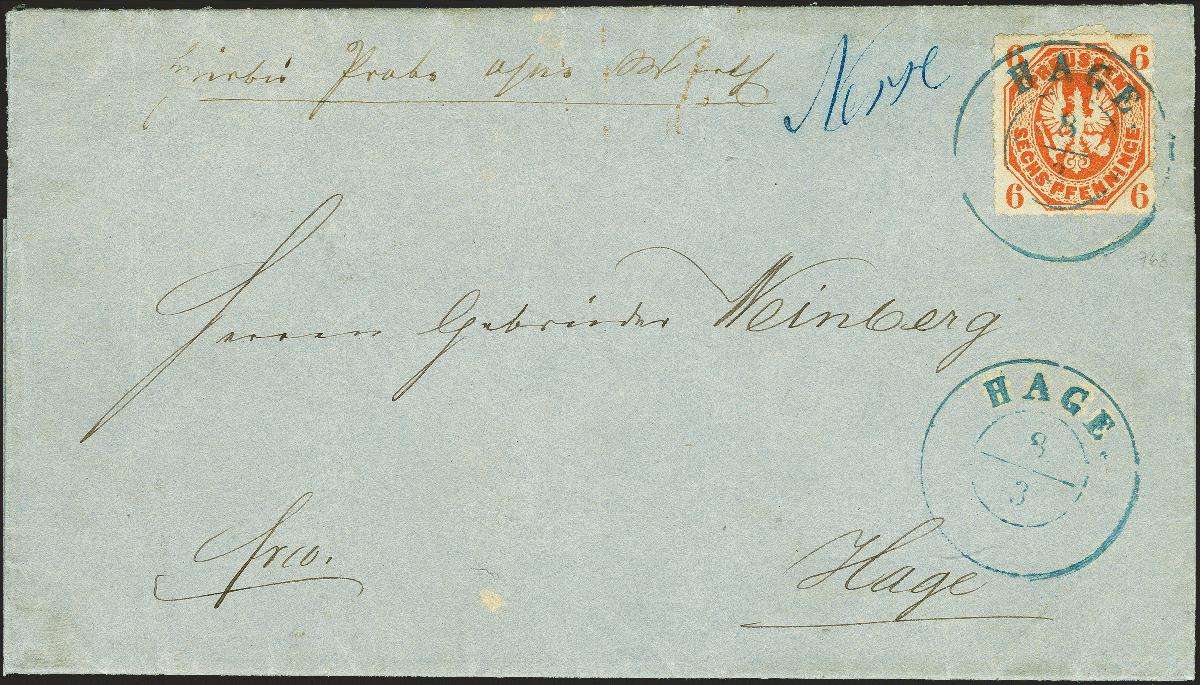 hierbei Probe ohne Werth
6 PREUSSEN 6
SECHS PFENNINGE
6 6
HAGE
8
968
Herren Gebrüder Weinberg
HAGE.
8
3
frco.
Hage